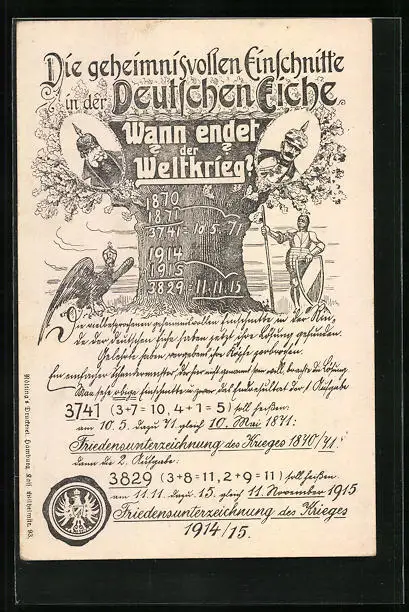 Die geheimnisvollen Einschnitte
in der Deutschen Eiche.
Wann endet
der
Weltkrieg?
1870
1871
3741 = 10.5.71
1914
1915
3829 = 11.11.15
Die vielbesprochenen geheimnisvollen Einschnitte in der Rin-
de der deutschen Eiche haben jetzt ihre Lösung gefunden.
Gelehrte haben vergebens ihre Köpfe zerbrochen.
Ein einfacher, der hier nicht genannt sein will, brachte die Lösung.
Man sehe obige Einschnitte u. zwar das Endresultat der 1. Aufgabe
3741 (3+7=10, 4+1=5) soll heißen:
am 10.5. dazu 71 gleich 10. Mai 1871:
Friedensunterzeichnung des Krieges 1870/71.
dann die 2. Aufgabe:
3829 (3+8=11, 2+9=11) soll heißen
am 11.11. dazu 15. gleich 11. November 1915
Friedensunterzeichnung des Krieges
1914/15.
Nölting's Druckerei, Hamburg, Kais. Wilhelmstr. 93.